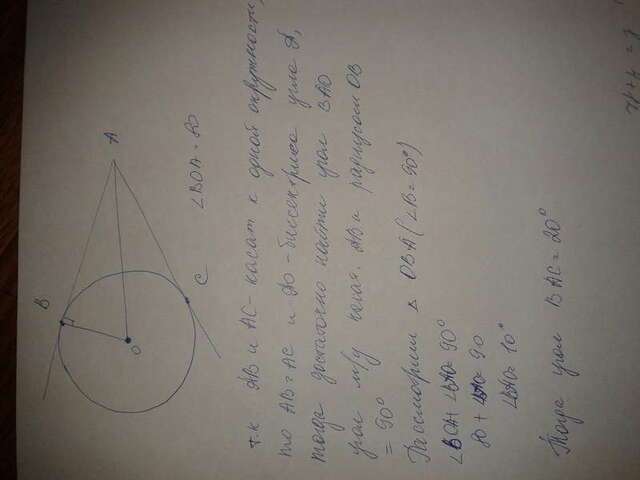 B
A
O
C
∠BOA = 80
т.к АВ и АС - касат к одной окружности,
то АВ = АС и АО - биссектриса угла А,
тогда достаточно найти угол ВАО
угол м/у касат. АВ и радиусом ОВ
= 90°
Рассмотрим △ ОВА (∠В = 90°)
∠BOA + ∠BAO = 90°
80 + ∠BAO = 90
∠BAO = 10°
Тогда угол ВАС = 20°